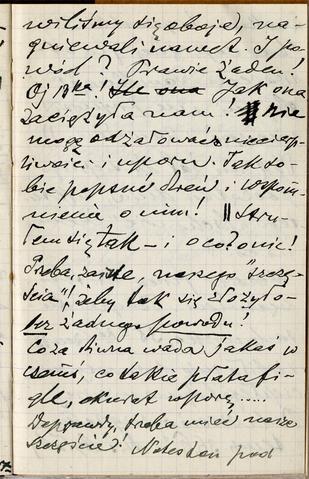 wiliśmy się oboje), na-
gniewali nawet. I po
wód? Prawie żaden!
Oj 13ka! Ile ona Jak ona
zaciężyła nam! nie
mogę odżałować niecierp
liwości i uporu. Tak so-
bie popsuć dzień i wspom
nienia o nim! Stru-
łem się tak — i o co to nie!
Trzeba, zaiste, naszego "szczę-
ścia"!, żeby tak się złożyło —
bez żadnego powodu!
Co za dziwna wada jakaś w
czemś, co takie płata fi-
gle, akurat w porę.....
Doprawdy, trzeba mieć nasze
szczęście! Notes ten pod